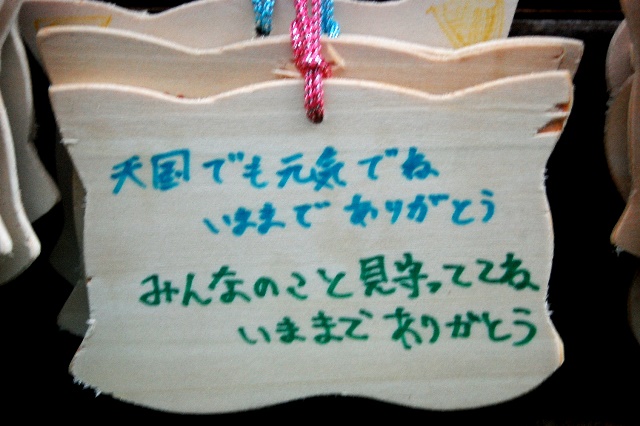 天国でも元気でね
いままでありがとう
みんなのこと見守っててね
いままでありがとう